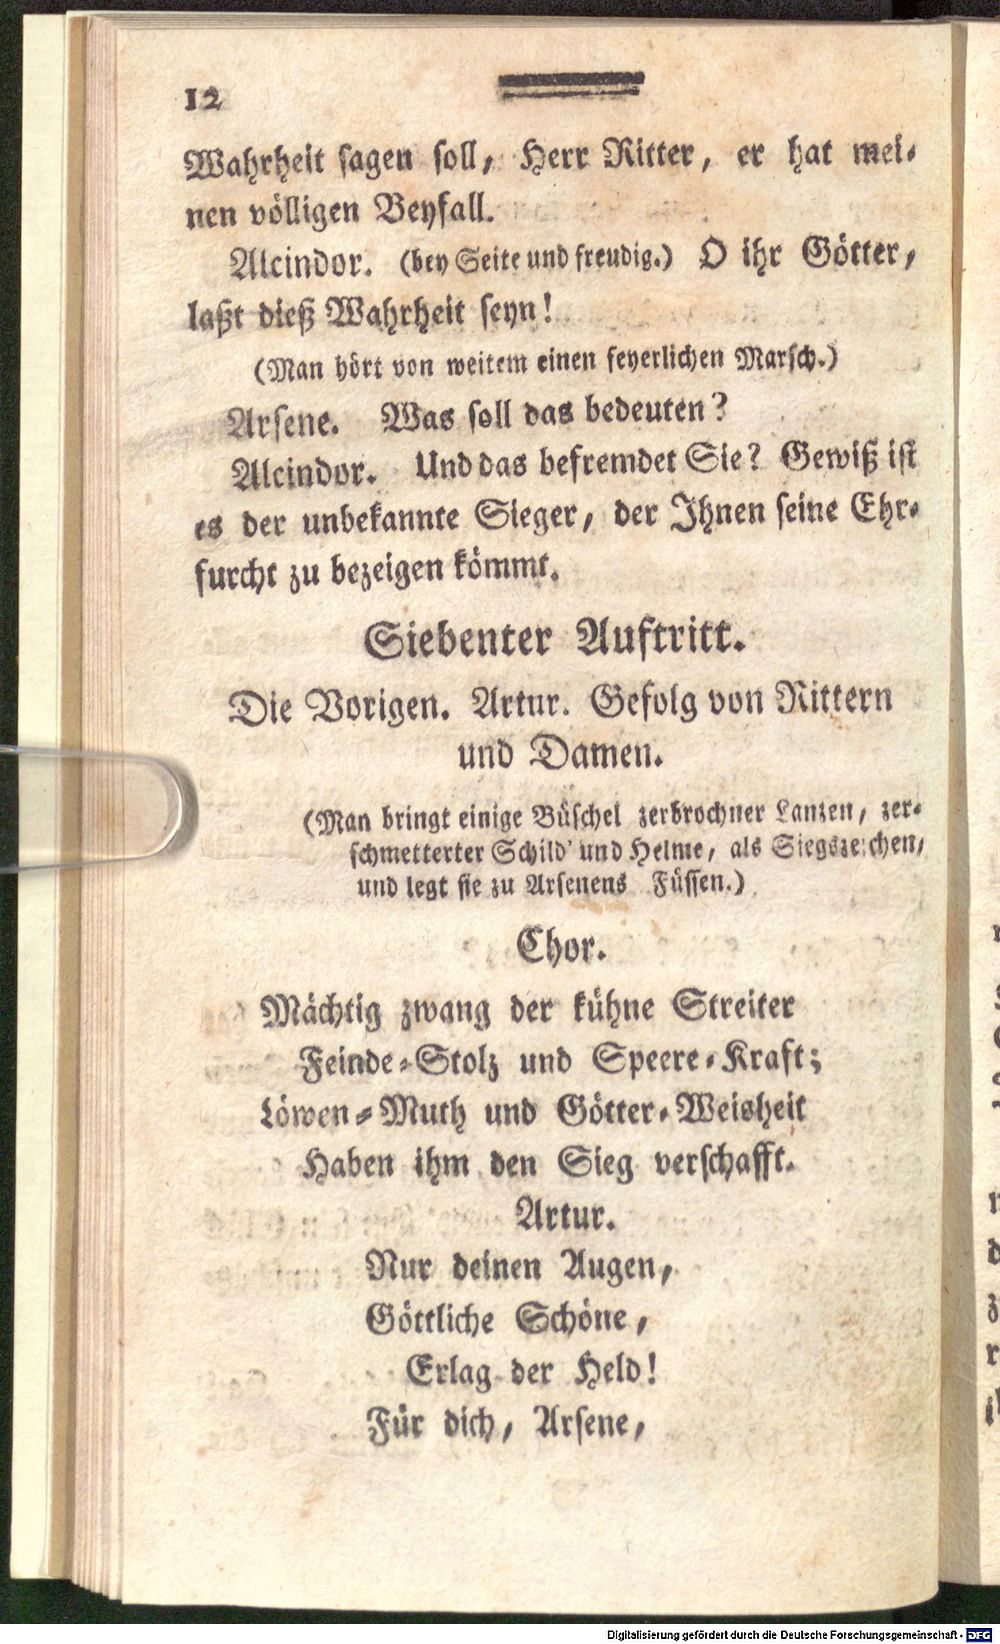 12
Wahrheit sagen soll, Herr Ritter, er hat mei-
nen völligen Beyfall.
Alcindor. (bey Seite und freudig.) O ihr Götter,
laßt dieß Wahrheit seyn!
(Man hört von weitem einen feyerlichen Marsch.)
Arsene. Was soll das bedeuten?
Alcindor. Und das befremdet Sie? Gewiß ist
es der unbekannte Sieger, der Ihnen seine Ehr-
furcht zu bezeigen kömmt.
Siebenter Auftritt.
Die Vorigen. Artur. Gefolg von Rittern
und Damen.
(Man bringt einige Büschel zerbrochner Lanzen, zer-
schmetterter Schild' und Helme, als Siegszeichen,
und legt sie zu Arsenens Füssen.)
Chor.
Mächtig zwang der kühne Streiter
Feinde-Stolz und Speere-Kraft;
Löwen-Muth und Götter-Weisheit
Haben ihm den Sieg verschafft.
Artur.
Nur deinen Augen,
Göttliche Schöne,
Erlag der Held!
Für dich, Arsene,
Digitalisierung gefördert durch die Deutsche Forschungsgemeinschaft - DFG